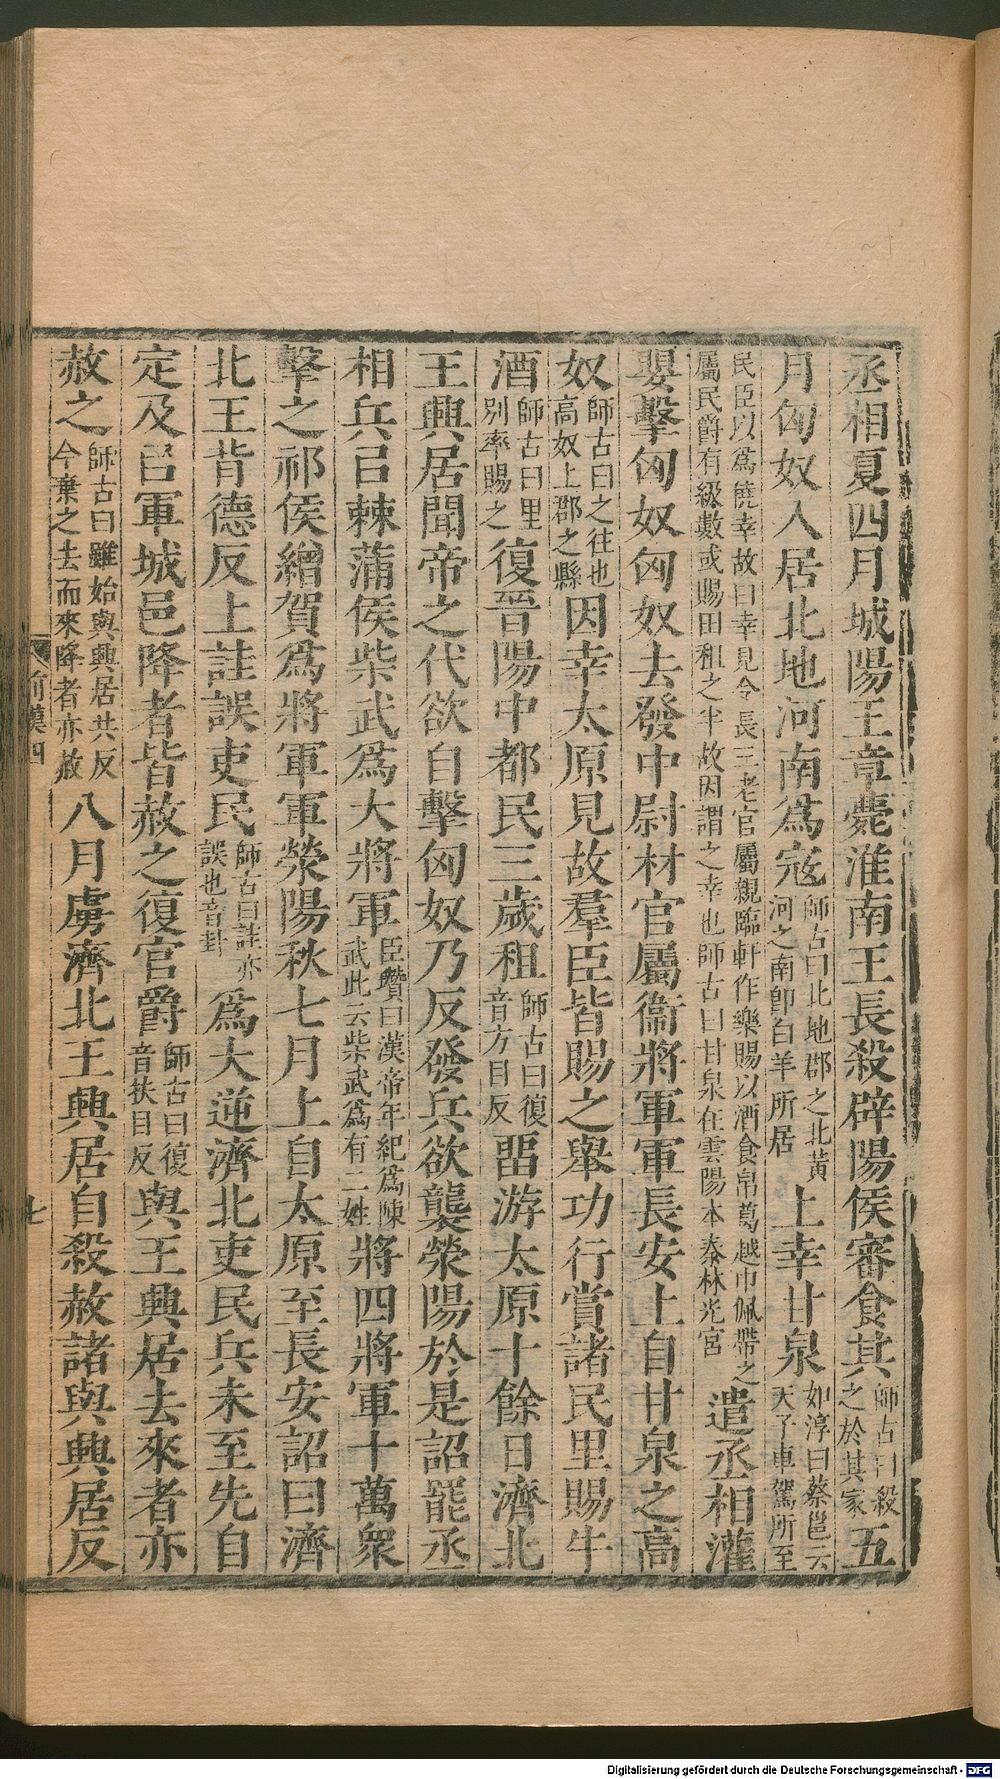 丞相夏四月城陽王章薨淮南王長殺辟陽侯審食其師古曰殺之於其家五
月匈奴入居北地河南為寇師古曰北地郡之北黃河之南卽白羊所居上幸甘泉如淳曰蔡邕云天子車駕所至
民臣以為僥幸故曰幸見令長三老官屬親臨軒作樂賜以酒食帛葛越巾佩帶之屬民爵有級數或賜田租之半故因謂之幸也師古曰甘泉在雲陽本秦林光宮遣丞相灌
嬰擊匈奴匈奴去發中尉材官屬衞將軍軍長安上自甘泉之高
奴師古曰之往也高奴上郡之縣因幸太原見故羣臣皆賜之舉功行賞諸民里賜牛
酒師古曰里別率賜之復晉陽中都民三歲租師古曰復音方目反畱游太原十餘日濟北
王興居聞帝之代欲自擊匈奴乃反發兵欲襲滎陽於是詔罷丞
相兵㠯棘蒲侯柴武為大將軍臣瓚曰漢帝年紀為陳武此云柴武為有二姓將四將軍十萬衆
擊之祁侯繒賀為將軍軍滎陽秋七月上自太原至長安詔曰濟
北王背德反上詿誤吏民師古曰詿亦誤也音卦為大逆濟北吏民兵未至先自
定及㠯軍城邑降者皆赦之復官爵師古曰復音扶目反與王興居去來者亦
赦之師古曰雖始與興居共反今棄之去而來降者亦赦八月虜濟北王興居自殺赦諸與興居反
前漢四
七
Digitalisierung gefördert durch die Deutsche Forschungsgemeinschaft - DFG